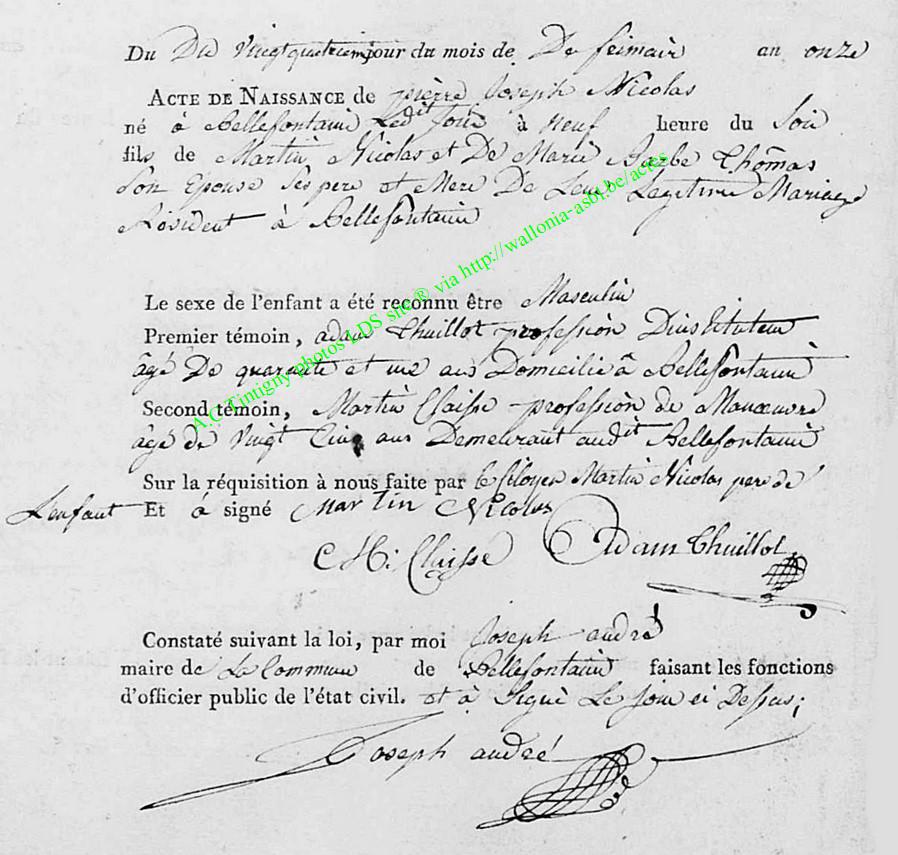 Du Du Vingt quatriem jour du mois de De frimair an onze
ACTE DE NAISSANCE de pierre Joseph Nicolas
né à Bellefontain Ledit Jour à Neuf heure du Soir
fils de Martin Nicolas et De Marie Barbe Thomas
Son Epouse Ses pere et Mere De Leur Legitime Mariage
Résident à Bellefontain
Le sexe de l'enfant a été reconnu être Masculin
Premier témoin, adam Thuillot profession Dinstituteur
âgé De quarante et une ans Domicilié à Bellefontaine
Second témoin, Martin Claisse profession de Manœuvre
âgé de Vingt Cinq ans Demeurant audit Bellefontaine
Sur la réquisition à nous faite par le Citoyen Martin Nicolas pere de
L'enfant Et à signé Martin Nicolas
M: Claisse Adam Thuillot
Constaté suivant la loi, par moi Joseph andré
maire de La Commune de Bellefontain faisant les fonctions
d'officier public de l'état civil. et à Signé Le Jour ci Dessus;
Joseph andré
A.C.Tintigny photos LDS site® via http://wallonia-asbl.be/actes